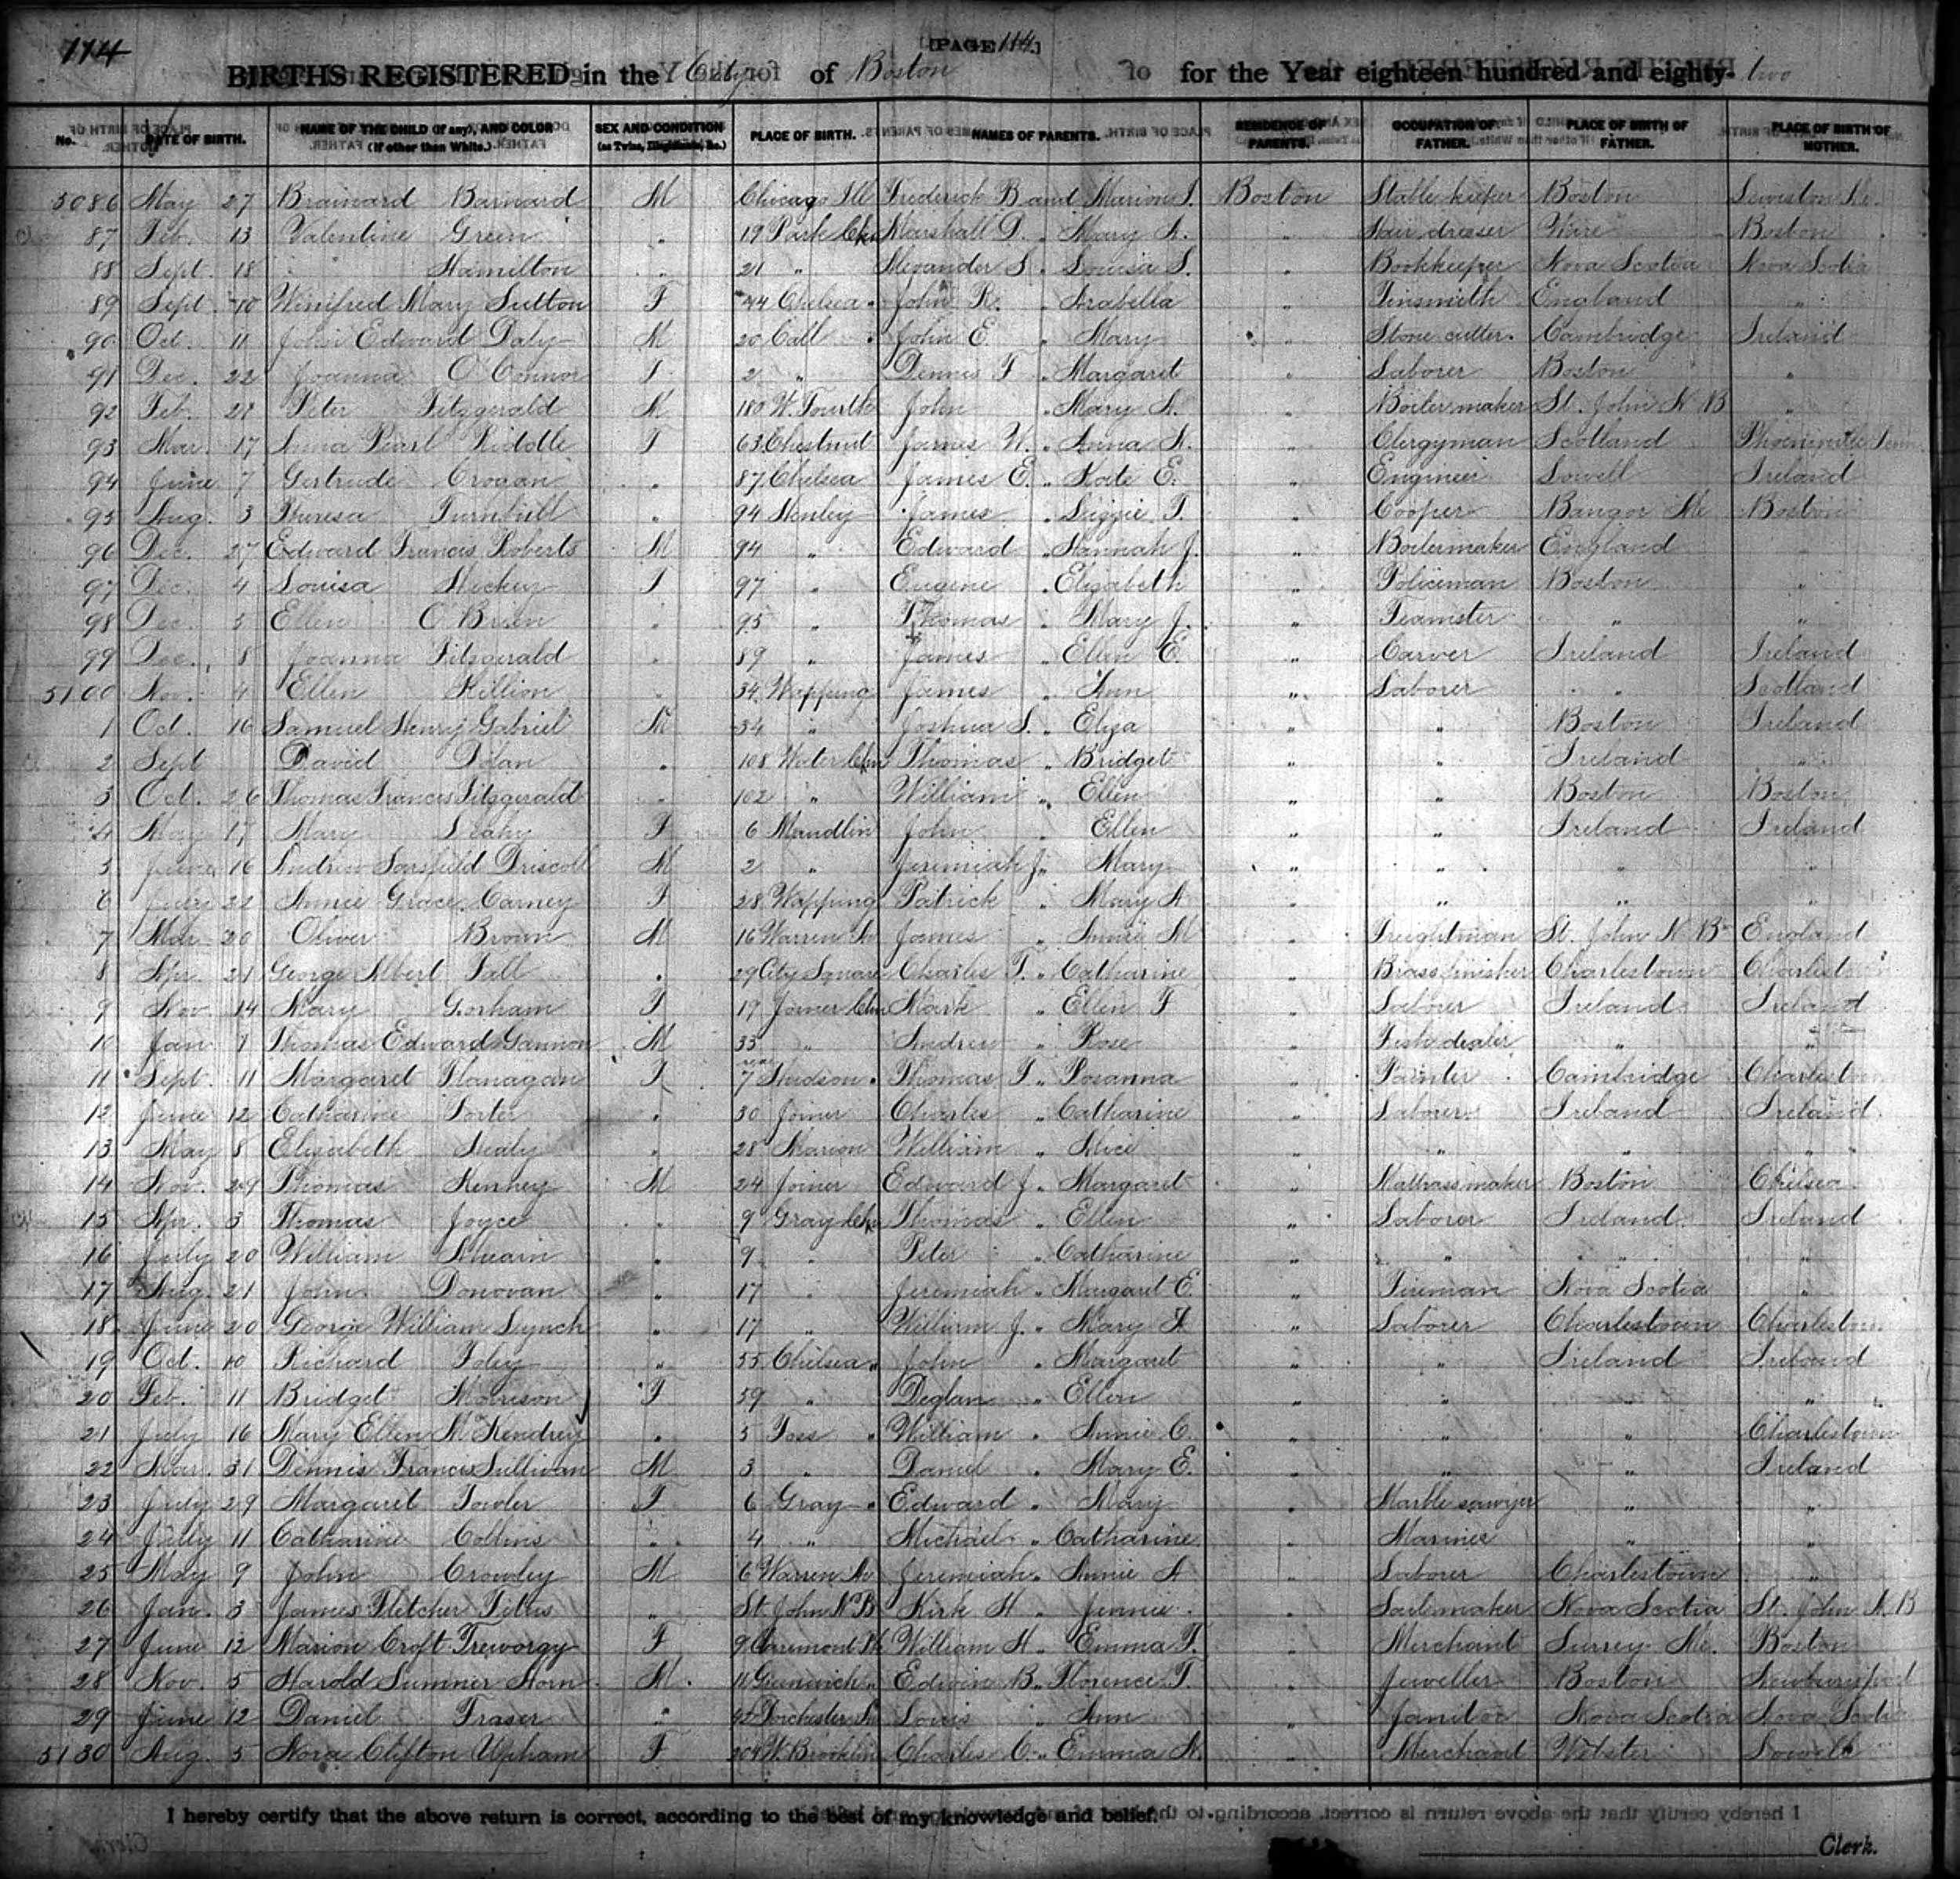 114
[PAGE 114.]
BIRTHS REGISTERED in the City of Boston for the Year eighteen hundred and eighty-two
No. DATE OF BIRTH. NAME OF THE CHILD (if any), AND COLOR (if other than White.) SEX AND CONDITION (as Twins, Illegitimate, &c.) PLACE OF BIRTH. NAMES OF PARENTS. RESIDENCE OF PARENTS. OCCUPATION OF FATHER. PLACE OF BIRTH OF FATHER. PLACE OF BIRTH OF MOTHER.
5086 May 27 Brainard Barnard M Chicago Ill Frederick B and Marion I. Boston Stable keeper Boston Lewiston Me.
87 Feb. 13 Valentine Green " 19 Park Chn Marshall D. " Mary A. " Hair dresser Ware Boston
88 Sept. 18 Hamilton " 21 " Alexander S " Louisa S. " Bookkeeper Nova Scotia Nova Scotia
89 Sept 10 Winifred Mary Sutton F 44 Chelsea " John R. " Arabella " Tinsmith England "
90 Oct. 11 John Edward Daly M 20 Call " John E " Mary " Stone cutter Cambridge Ireland
91 Dec. 22 Joanna O'Connor F 2 " Dennis F " Margaret " Laborer Boston "
92 Feb. Peter Fitzgerald M 180 W. Fourth John " Mary A. " Boiler maker St. John N B "
93 Mar. 17 Anna Pearl Riddle F 63 Chestnut James W. " Anna " Clergyman Scotland Phoenixville Penn
94 June 7 Gertrude Crogan " 87 Chelsea James E. " Kate E. " Engineer Lowell Ireland
95 Aug. 3 Theresa Turnbull " 94 Henley James " Lizzie T. " Cooper Bangor Me Boston
96 Dec. 27 Edward Francis Roberts M 94 " Edward " Hannah J. " Boilermaker England "
97 Dec. 4 Louisa Hickey F 97 " Eugene " Elizabeth " Policeman Boston "
98 Dec. 5 Ellen O'Brien " 95 " Thomas " Mary J. " Teamster " "
99 Dec. 8 Joanna Fitzgerald " 89 " James " Ellen E. " Carver Ireland Ireland
5100 Nov. 4 Ellen Killion " 34 Wapping James " Ann " Laborer " Scotland
1 Oct. 16 Samuel Henry Gabriel M 34 " Joshua S. " Eliza " " Boston Ireland
2 Sept David Dolan " 108 Water Chn Thomas " Bridget " " Ireland "
3 Oct. 26 Thomas Francis Fitzgerald " 102 " William " Ellen " " Boston Boston
4 May 17 Mary Leahy F 6 Maudlin John " Ellen " " Ireland Ireland
5 June 16 Andrew Sarsfield Driscoll M 2 " Jeremiah J " Mary " " " "
6 22 Annie Grace Carney F 28 Wapping Patrick " Mary A " " " "
7 Mar 20 Oliver Brown M 16 Warren Av James " Annie M " Freightman St. John N B England
8 Apr. 21 George Albert Fall " 29 City Square Charles F. " Catharine " Brass finisher Charlestown Charlestown
9 Nov 14 Mary Gorham F 19 Joiner Chn Mark " Ellen F " Laborer Ireland Ireland
10 Jan 7 Thomas Edward Gannon M 33 " Andrew " Rose " Fish dealer " "
11 Sept. 11 Margaret Flanagan F rear 7 Hudson " Thomas F " Rosanna " Painter Cambridge Charlestown
12 June 12 Catharine Porter " 30 Joiner Charles " Catharine " Laborer Ireland Ireland
13 May 8 Elizabeth Healy " 28 Marion William " Alice " " " "
14 Nov. 29 Thomas Kenney M 24 Joiner Edward J " Margaret " Mattress maker Boston Chelsea
15 Apr. 3 Thomas Joyce " 9 Gray Chn Thomas " Ellen " Laborer Ireland Ireland
16 July 20 William " 9 " Peter " Catharine " " " "
17 Aug. 21 John Donovan " 17 " Jeremiah " Margaret E. " Fireman Nova Scotia "
18 June 20 George William Lynch " 17 " William J. " Mary A " Laborer Charlestown Charlestown
19 Oct. 10 Richard Foley " 55 Chelsea " John " Margaret " " Ireland Ireland
20 Feb. 11 Bridget Morrison F 59 " Deglan " Ellen " " " "
21 July 16 Mary Ellen McKendrey " 5 Foss " William " Annie C. " " " Charlestown
22 Mar. 31 Dennis Francis Sullivan M 3 " Daniel " Mary E. " " " Ireland
23 July 29 Margaret Fowler F 6 Gray " Edward " Mary " Marble sawyer " "
24 July 11 Catharine Collins " 4 " Michael " Catharine " Mariner " "
25 May 9 John Crowley M 6 Warren Av Jeremiah " Annie A " Laborer Charlestown "
26 Jan. 3 James Fletcher Titus " St. John N B Kirk H " Jennie " Sailmaker Nova Scotia St. John N. B
27 June 12 Marion Croft Treworgy F 9 Claremont Pk William H " Emma F. " Merchant Surrey Me. Boston
28 Nov. 5 Harold Sumner Horn M 11 Greenwich " Edwin B " Florence T. " Jeweller Boston Newburyport
29 June 12 Daniel Fraser " 42 Dorchester Av Louis " Ann " Janitor Nova Scotia Nova Scotia
5130 Aug. 5 Nora Clifton Upham F 204 W. Brookline Charles C. " Emma " Merchant Webster Lowell
I hereby certify that the above return is correct, according to the best of my knowledge and belief.
Clerk.